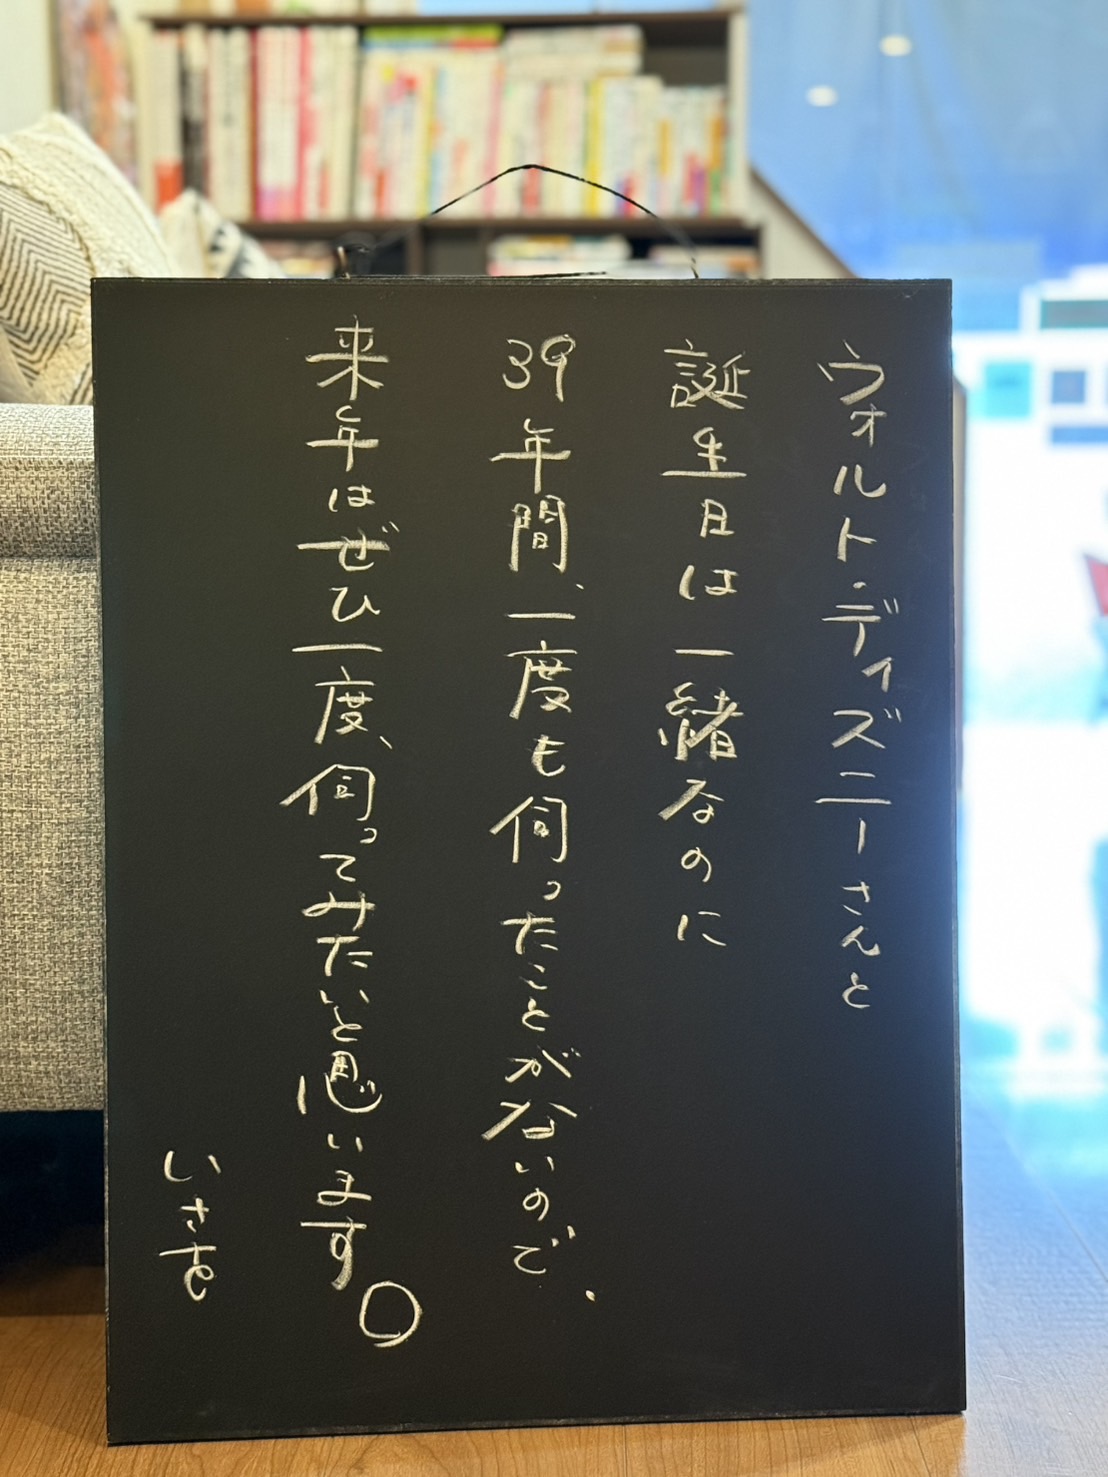 ウォルト・ディズニーさんと
誕生日は一緒なのに
39年間、一度も伺ったことがないので、
来年はぜひ一度、伺ってみたいと思います。
いさを